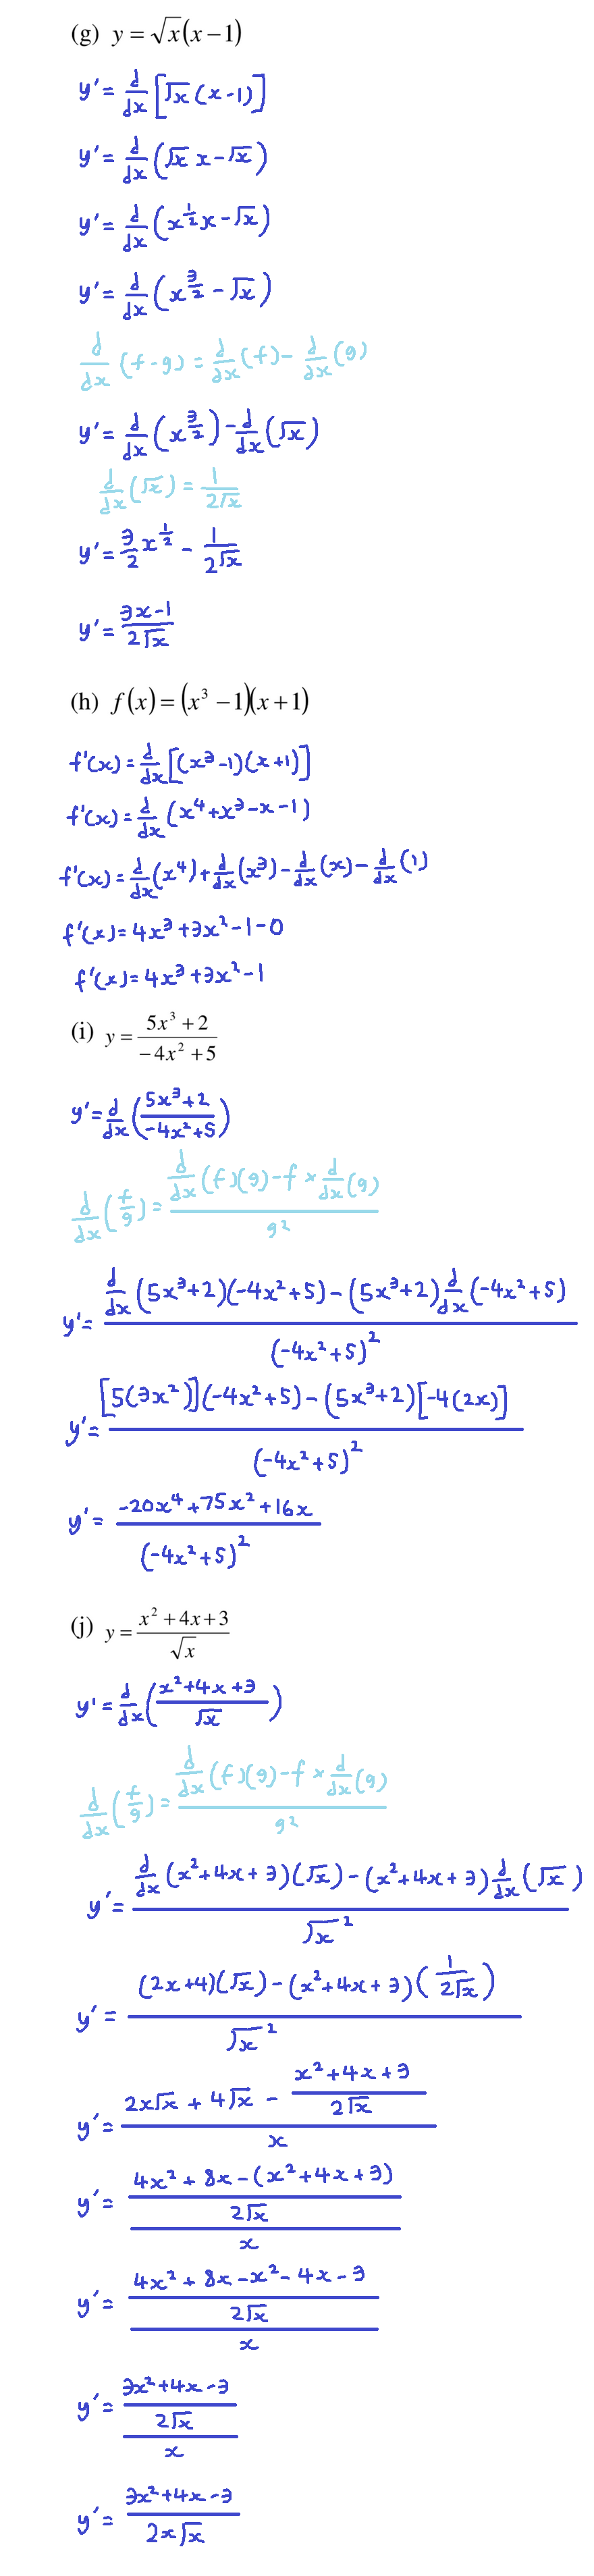 (g) y = √x(x − 1)
y' = d/dx [√x (x - 1)]
y' = d/dx (√x x - √x)
y' = d/dx (x^(1/2) x - √x)
y' = d/dx (x^(3/2) - √x)
d/dx (f - g) = d/dx (f) - d/dx (g)
y' = d/dx (x^(3/2)) - d/dx (√x)
d/dx (√x) = 1/(2√x)
y' = 3/2 x^(1/2) - 1/(2√x)
y' = (3x - 1)/(2√x)
(h) f(x) = (x³ − 1)(x + 1)
f'(x) = d/dx [(x³ - 1)(x + 1)]
f'(x) = d/dx (x⁴ + x³ - x - 1)
f'(x) = d/dx (x⁴) + d/dx (x³) - d/dx (x) - d/dx (1)
f'(x) = 4x³ + 3x² - 1 - 0
f'(x) = 4x³ + 3x² - 1
(i) y = (5x³ + 2)/(−4x² + 5)
y' = d/dx ((5x³ + 2)/(-4x² + 5))
d/dx (f/g) = (d/dx (f)(g) - f × d/dx (g))/g²
y' = (d/dx (5x³ + 2)(-4x² + 5) - (5x³ + 2) d/dx (-4x² + 5))/(-4x² + 5)²
y' = ([5(3x²)](-4x² + 5) - (5x³ + 2)[-4(2x)])/(-4x² + 5)²
y' = (-20x⁴ + 75x² + 16x)/(-4x² + 5)²
(j) y = (x² + 4x + 3)/√x
y' = d/dx ((x² + 4x + 3)/√x)
d/dx (f/g) = (d/dx (f)(g) - f × d/dx (g))/g²
y' = (d/dx (x² + 4x + 3)(√x) - (x² + 4x + 3) d/dx (√x))/√x²
y' = ((2x + 4)(√x) - (x² + 4x + 3)(1/(2√x)))/√x²
y' = (2x√x + 4√x - (x² + 4x + 3)/(2√x))/x
y' = ((4x² + 8x - (x² + 4x + 3))/(2√x))/x
y' = ((4x² + 8x - x² - 4x - 3)/(2√x))/x
y' = ((3x² + 4x - 3)/(2√x))/x
y' = (3x² + 4x - 3)/(2x√x)